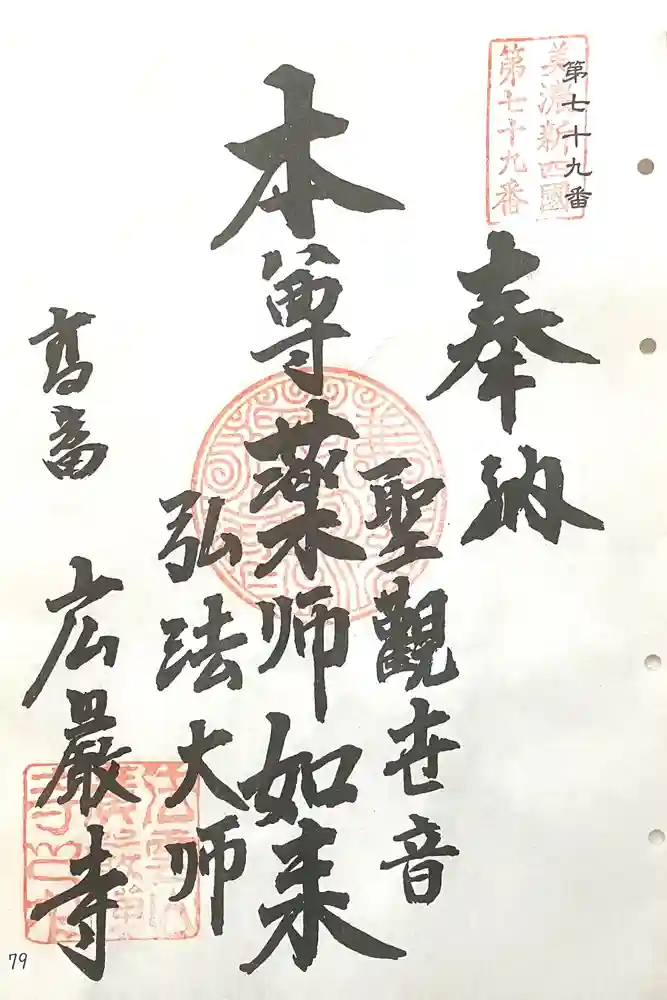 第七十九番
美濃新四國
第七十九番
奉納
聖觀世音
本尊薬师如来
弘法大师
高畜
広嚴寺
79